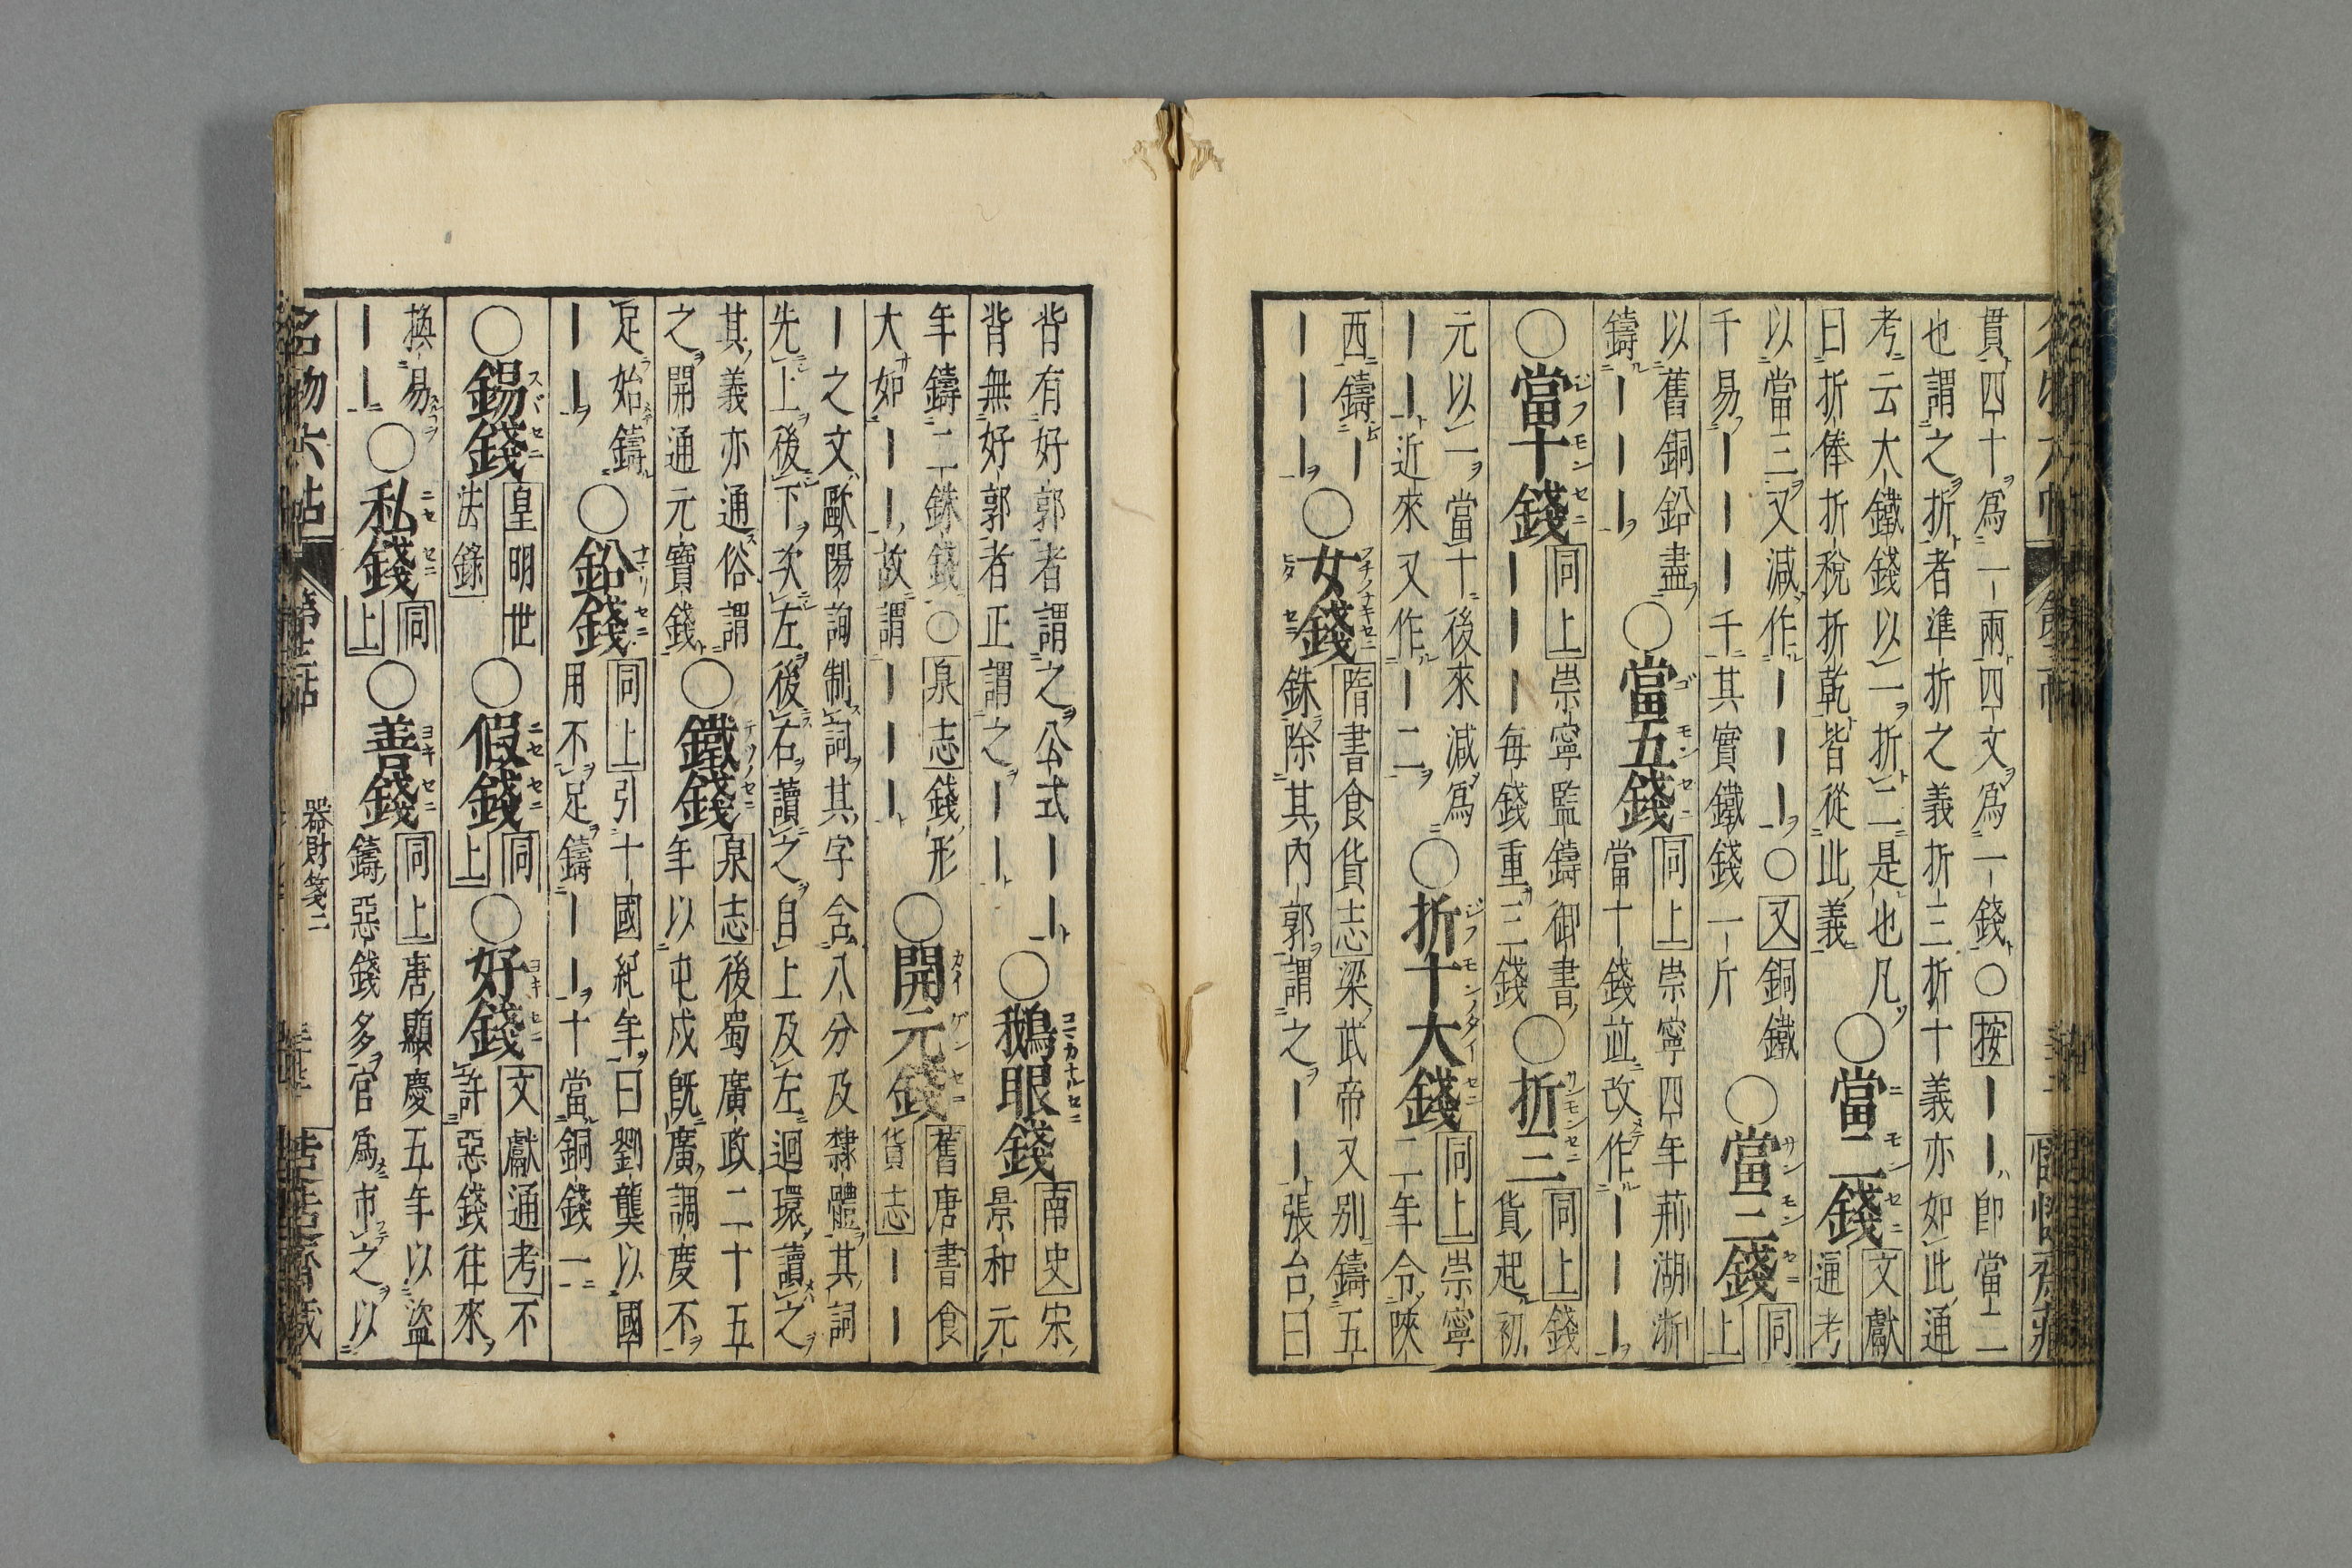 貫四十爲一兩四文爲一錢○按——卽當二
也謂之折者準折之義折三折十義亦如此通
考云大鐵錢以一折二是也凡
曰折俸折稅折乾皆從此義
○當二錢
文獻
通考
以當三又減作———○又銅鐵
千易———千其實鐵錢一斤
○當三錢
同
上
以舊銅鉛盡
鑄———
○當五錢
同上崇寧四年荊湖淅
當十錢竝改作———
○當十錢
同上崇寧監鑄御書
————每錢重三錢
○折三
同上錢
貨起初
元以一當十後來減爲
——近來又作—二
○折十大錢
同上崇寧
二年令陜
西鑄—
———
○女錢
隋書食貨志梁武帝又別鑄五
銖除其內郭謂之——張台曰
背有好郭者謂之公式——
背無好郭者正謂之——
○鵝眼錢
南史宋
景和元
年鑄二銖錢○泉志錢形
大如——故謂———
○開元錢
舊唐書食
貨志——
—之文歐陽詢制詞其字含八分及隷體其詞
先上後下次左後右讀之自上及左迴環讀之
其義亦通俗謂
之開通元寶錢
○鐵錢
泉志後蜀廣政二十五
年以屯戍旣廣調度不
足始鑄
——
○鉛錢
同上引十國紀年曰劉龔以國
用不足鑄——十當銅錢一
○錫錢
皇明世
法錄
○假錢
同
上
○好錢
文獻通考不
許惡錢往來
換易
——
○私錢
同
上
○善錢
同上唐顯慶五年以盜
鑄惡錢多官爲市之以
名物六帖
器財箋二